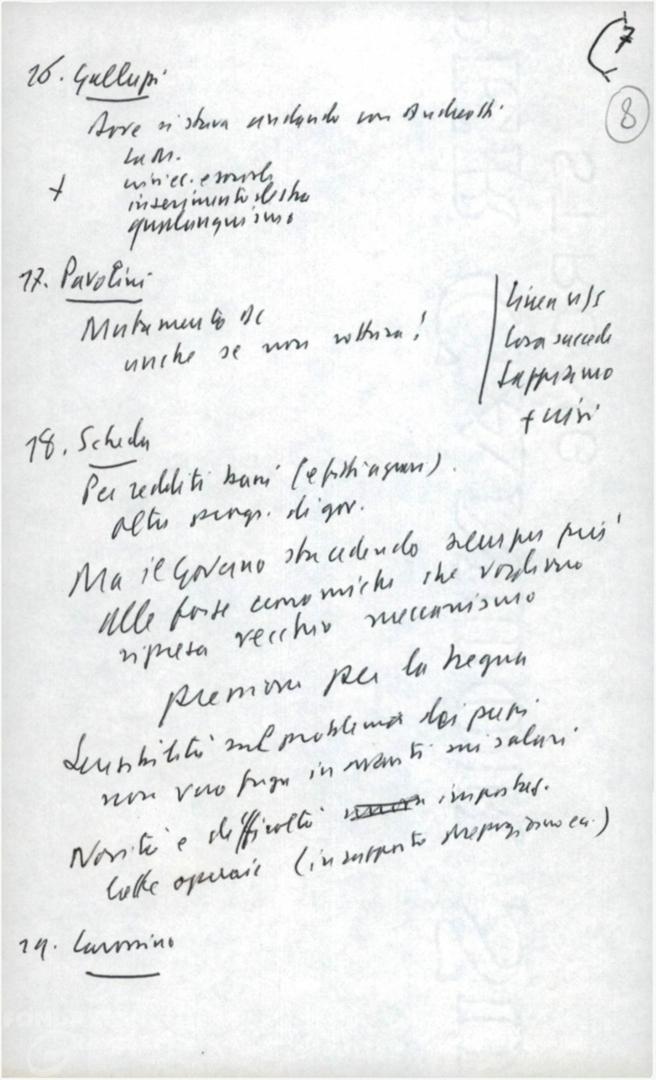 7
8
16. Gallupi
Dove si stava andando con Andreotti
inserimento destra
qualunquismo
+
17. Pavolini
Mutamento DC
anche se non rottura!
Linea
Cosa succede
Sappiamo
18. Scheda
Per redditi bassi (e fitti agrari).
altri progr. di gov.
Ma il Governo sta cedendo sempre più
alle forze economiche che vogliono
ripresa vecchio meccanismo
premono per la tregua
Sensibilità sul problema dei prezzi
non vero fuga in avanti sui salari
Novità e difficoltà impostaz.
lotte operaie (in rapporto
19. Carossino